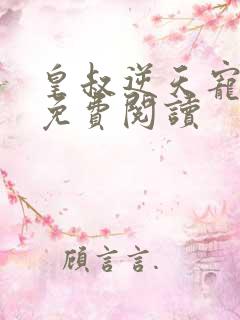 皇叔逆天寵
免費閱讀
顧言言.